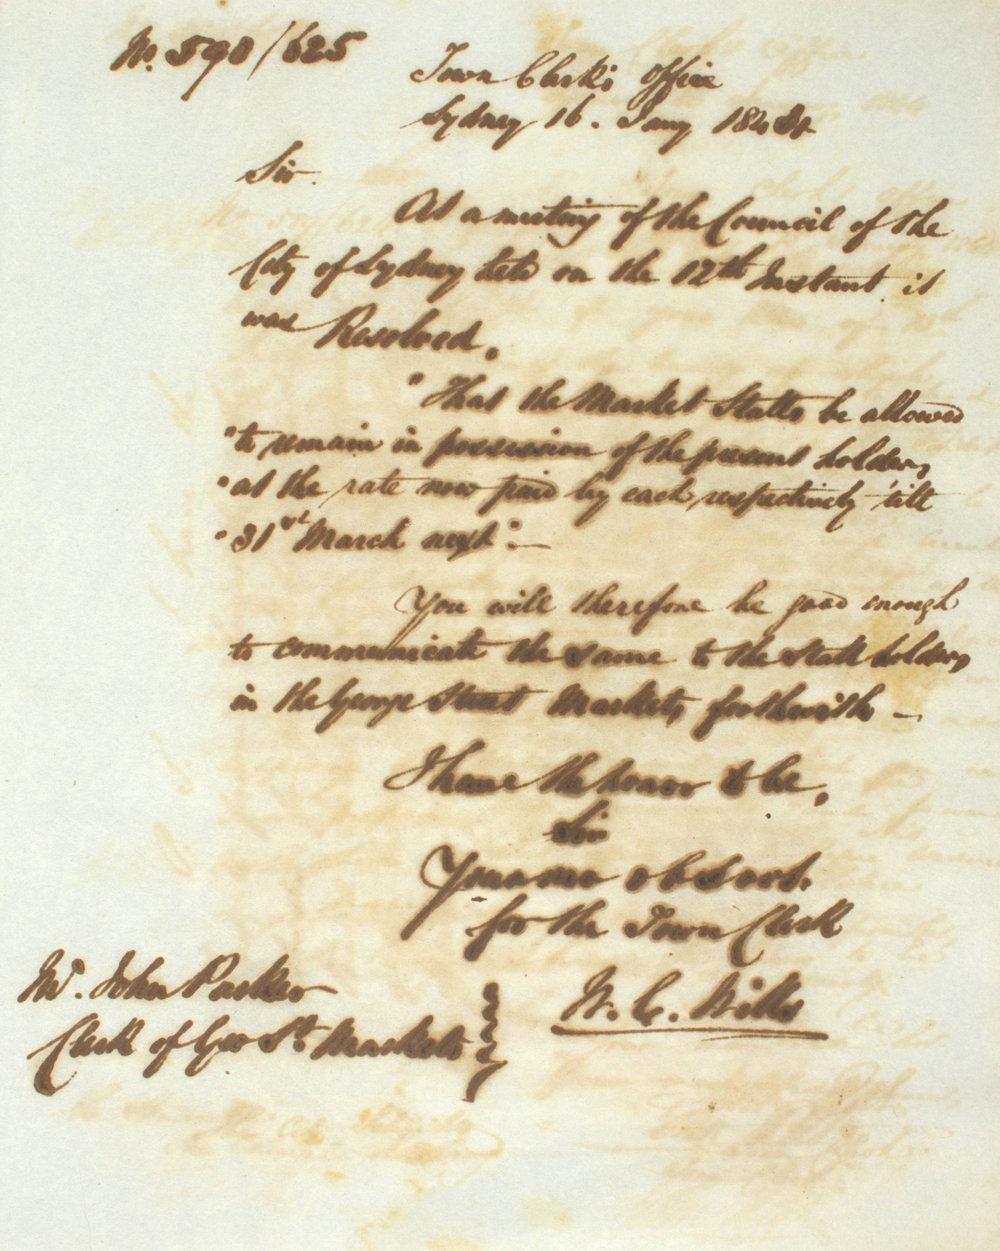 No. 590/625
Town Clerk's Office
Sydney 16. Jany 1844
Sir.
At a meeting of the Council of the
City of Sydney held on the 12th Instant it
was Resolved,
"That the Market Stalls be allowed
"to remain in possession of the present holders,
"at the rate now paid by each respectively till
"31st March next". —
You will therefore be good enough
to communicate the same to the stall holders,
in the George Street Markets forthwith —
I have the honor to be,
Sir
Your mo ob Servt.
for the Town Clerk
W. C. Wills
Mr. John Parker
Clerk of Geo St. Markets